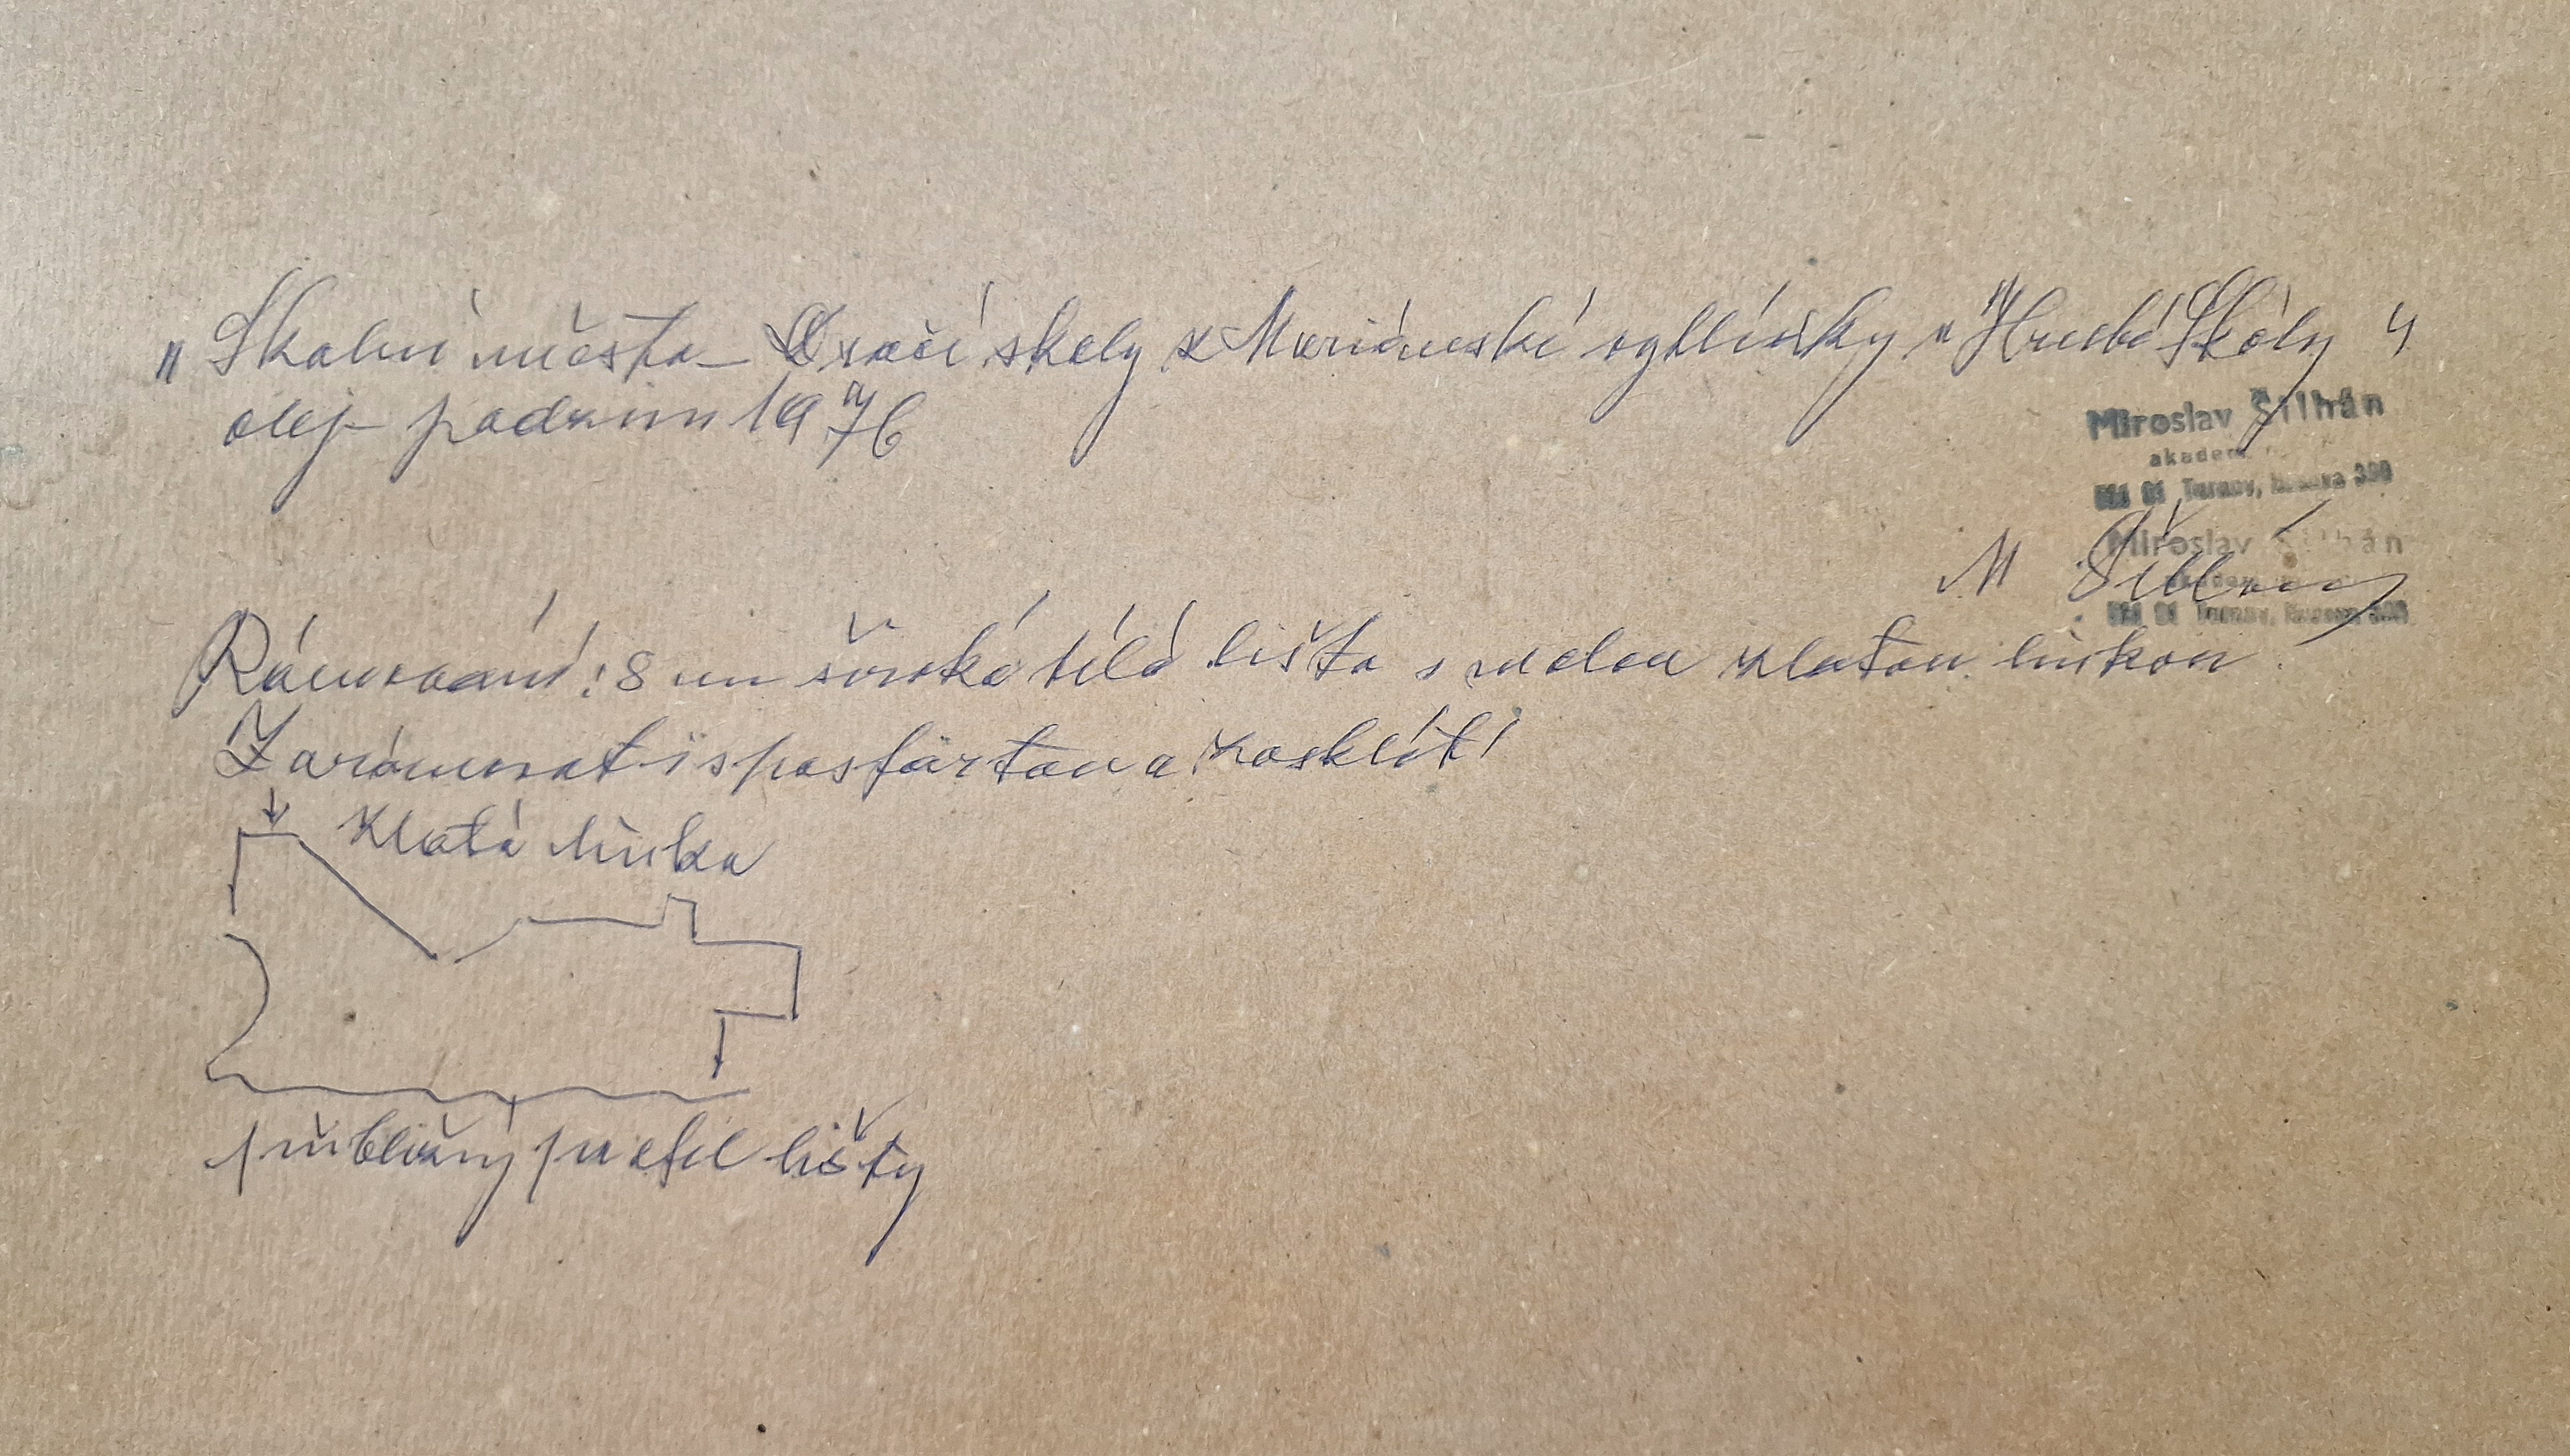 „Skalní město – Dračí skály z Mariánské vyhlídky „Hrubé Skály“
olej – podzim 1976
Miroslav Šilhán
akadem.
511 01 Turnov, 390
Miroslav Šilhán
akadem.
511 01 Turnov,
M Šilhán
Rámování: 8 cm široká bílá lišta s malou zlatou linkou.
Zarámovat i s paspartou a zasklít!
Zlatá linka
přibližný profil lišty